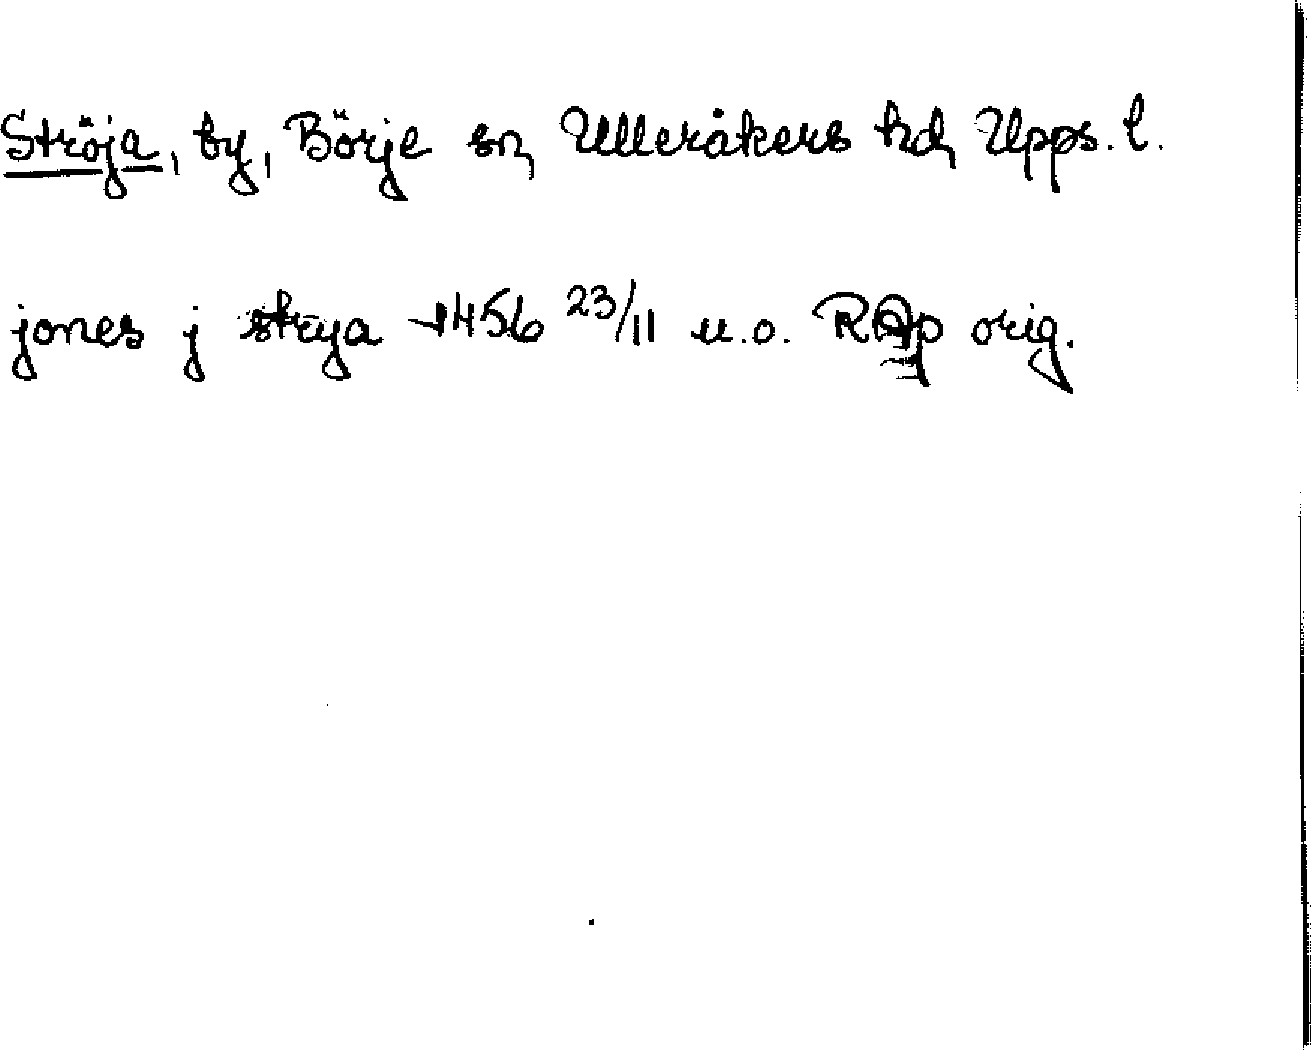 Ströja, by, Börje sn, Ulleråkers hd, Upps. l.
jones j strya 1456 23/11 u.o. RAp orig.